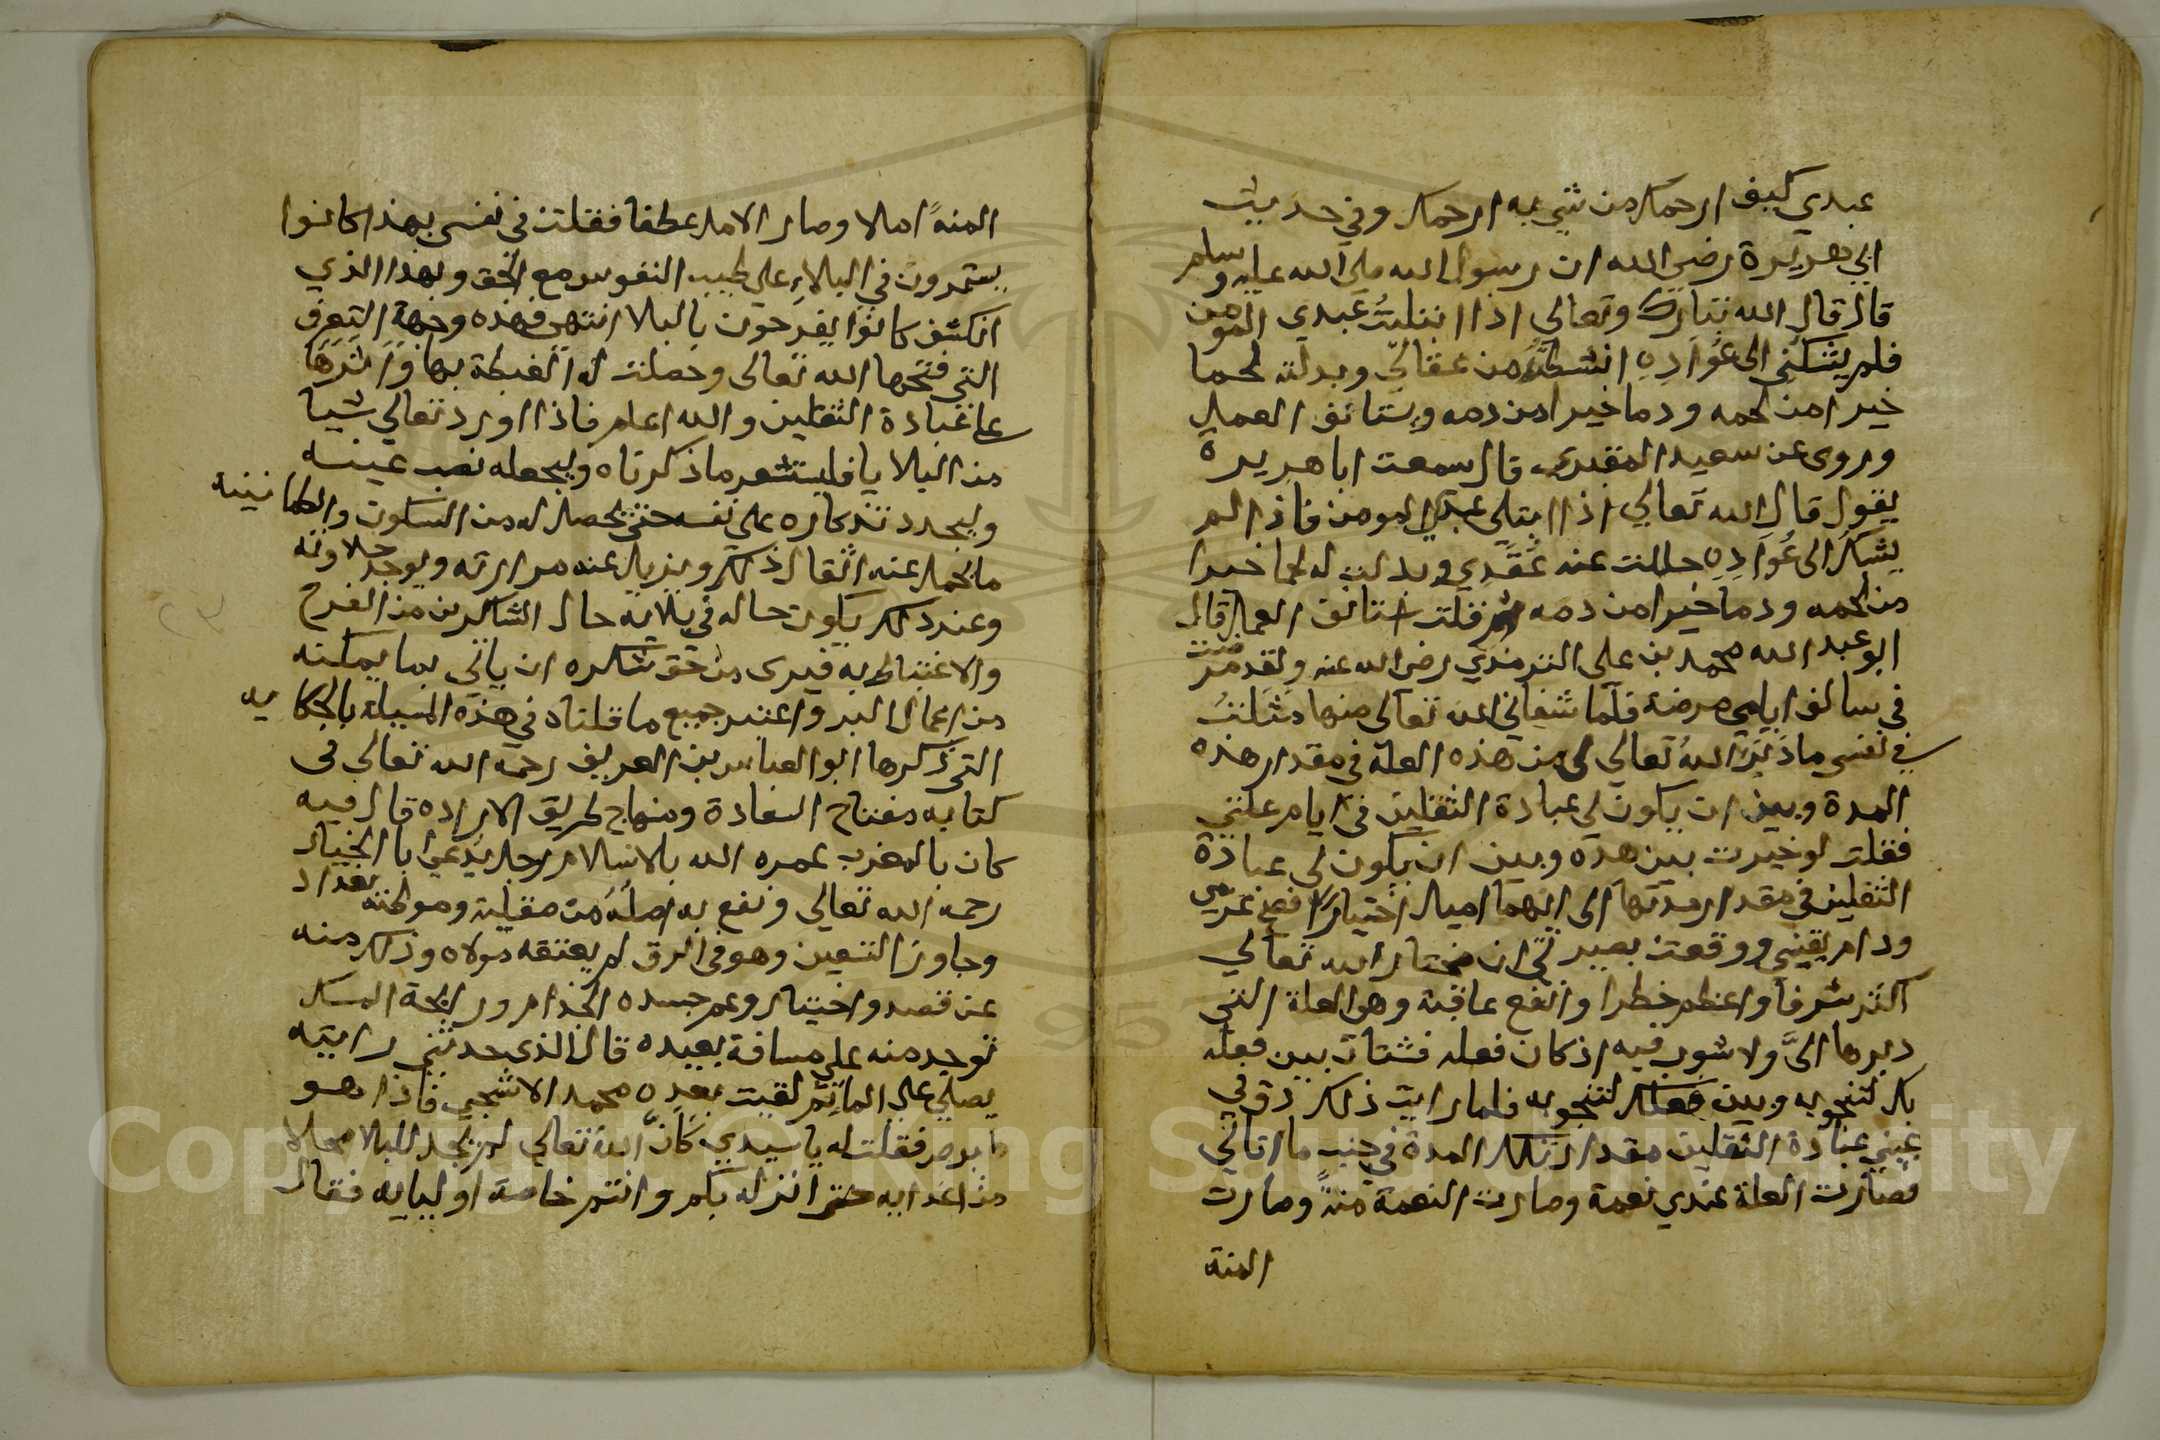 عبدي كيف ارحمك من شي به ارحمك وفي حديث
ابي هريرة رضي الله ان رسول الله صلى الله عليه وسلم
قال قال الله تبارك وتعالي اذا ابتليت عبدي المومن
فلم يشكني الى عواده انشطته من عقالي وبدلته لحما
خيرا من لحمه ودما خيرا من دمه ويستانف العمل
وروى عن سعيد المقبري قال سمعت ابا هريرة
يقول قال الله تعالي اذا ابتلى عبدي المومن فاذا لم
يشك الى عواده حللت عنه عقدي وبدلت له لحما خيرا
من لحمه ودما خيرا من دمه ثم قلت استانف العمل قال
ابو عبد الله محمد بن علي الترمذي رضى الله عنه ولقد مرضت
في سالف ايامي مرضة فلما شفاني الله تعالى منها مثلت
في نفسي ما دبر الله تعالي لي من هذه العلة في مقدار هذه
المدة وبين ان يكون لي عبادة الثقلين في ايام علتي
فقلت لو خيرت بين هذه وبين ان يكون لي عبادة
الثقلين في مقدار مدتها الى ايهما اميل اختيارا فصح عزمي
ودام يقيني ووقعت بصيرتي ان مختار الله تعالي
اكثر شرفا واعظم خطرا وانفع عاقبة وهو العلة التي
دبرها الي ولا شوب فيه اذ كان فعله فشتان بين فعله
بك لتنجو به وبين فعلك لتنجو به فلما رايت ذلك دق في
عيني عبادة الثقلين مقدار تلك المدة في جنب ما اتاني
فصارت العلة عندي نعمة وصارت النعمة منة وصارت
المنة
المنة املا وصار الامل عطفا فقلت في نفسي بهذا كانوا
يستمرون في البلاء على طيب النفوس مع الحق وبهذا الذي
انكشف كانوا يفرحون بالبلا انتهى فهذه وجهة التعرف
التي فتحها الله تعالى وحصلت له الغبطة بها واثرها
على عبادة الثقلين والله اعلم فاذا اورد تعالي شيا
من البلايا فليستشعر ما ذكرناه وليجعله نصب عينه
وليجدد تذكاره على نفسه حتى يحصل له من السكون والطمانينة
ما يحمل عنه اثقال ذلك ويزيل عنه مرارته ويوجد حلاوته
وعند ذلك يكون حاله في بلائه حال الشاكرين من الفرح
والاغتباط به فيرى من حق شكره ان ياتي بما يمكنه
من اعمال البر واعتبر جميع ما قلناه في هذه المسيلة بالحكاية
التي ذكرها ابو العباس بن العريف رحمه الله تعالي في
كتابه مفتاح السعادة ومنهاج طريق الاراده قال فيه
كان بالمغرب عمره الله بالاسلام رجل يدعي ابا الخيار
رحمه الله تعالي ونفع به اصله من صقلية وموطنه بغداد
وجاوز التسعين وهو في الرق لم يعتقه مولاه وذلك منه
عن قصد واختيار وعم جسده الجذام ورايحة المسك
توجد منه على مسافة بعيده قال الذي حدثني رايته
يصلي على الما ثم لقيت بعده محمد الاشجي فاذا هو
ابرص فقلت له يا سيدي كان الله تعالي لم يجد للبلا محلا
من اعدايه حتى انزله بكم وانتم خاصة اوليايه فقال